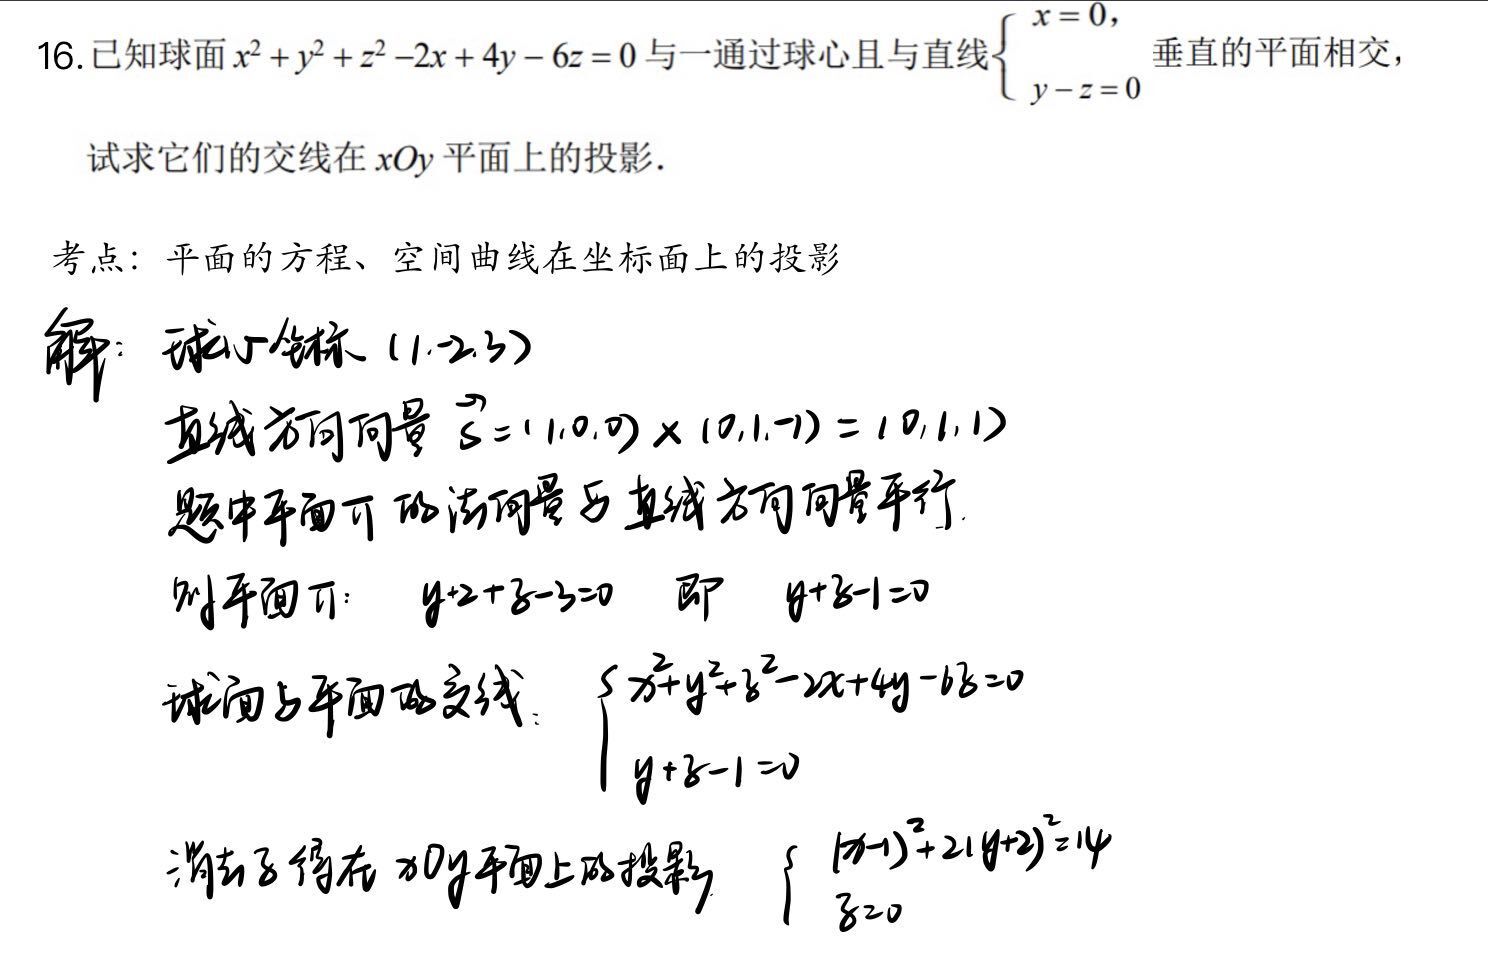 16. 已知球面 x² + y² + z² −2x + 4y − 6z = 0 与一通过球心且与直线 { x = 0, y − z = 0 垂直的平面相交，
试求它们的交线在 xOy 平面上的投影．
考点：平面的方程、空间曲线在坐标面上的投影
解：球心坐标 (1.-2.3)
直线方向向量 s⃗ = (1.0.0) × (0,1.-1) = (0,1,1)
题中平面π的法向量与直线方向向量平行.
则平面π： y+2+z−3=0 即 y+z−1=0
球面与平面的交线： { x²+y²+z²−2x+4y−6z=0
y+z−1=0
消去z得在xOy平面上的投影 { (x−1)²+2(y+2)²=14
z=0